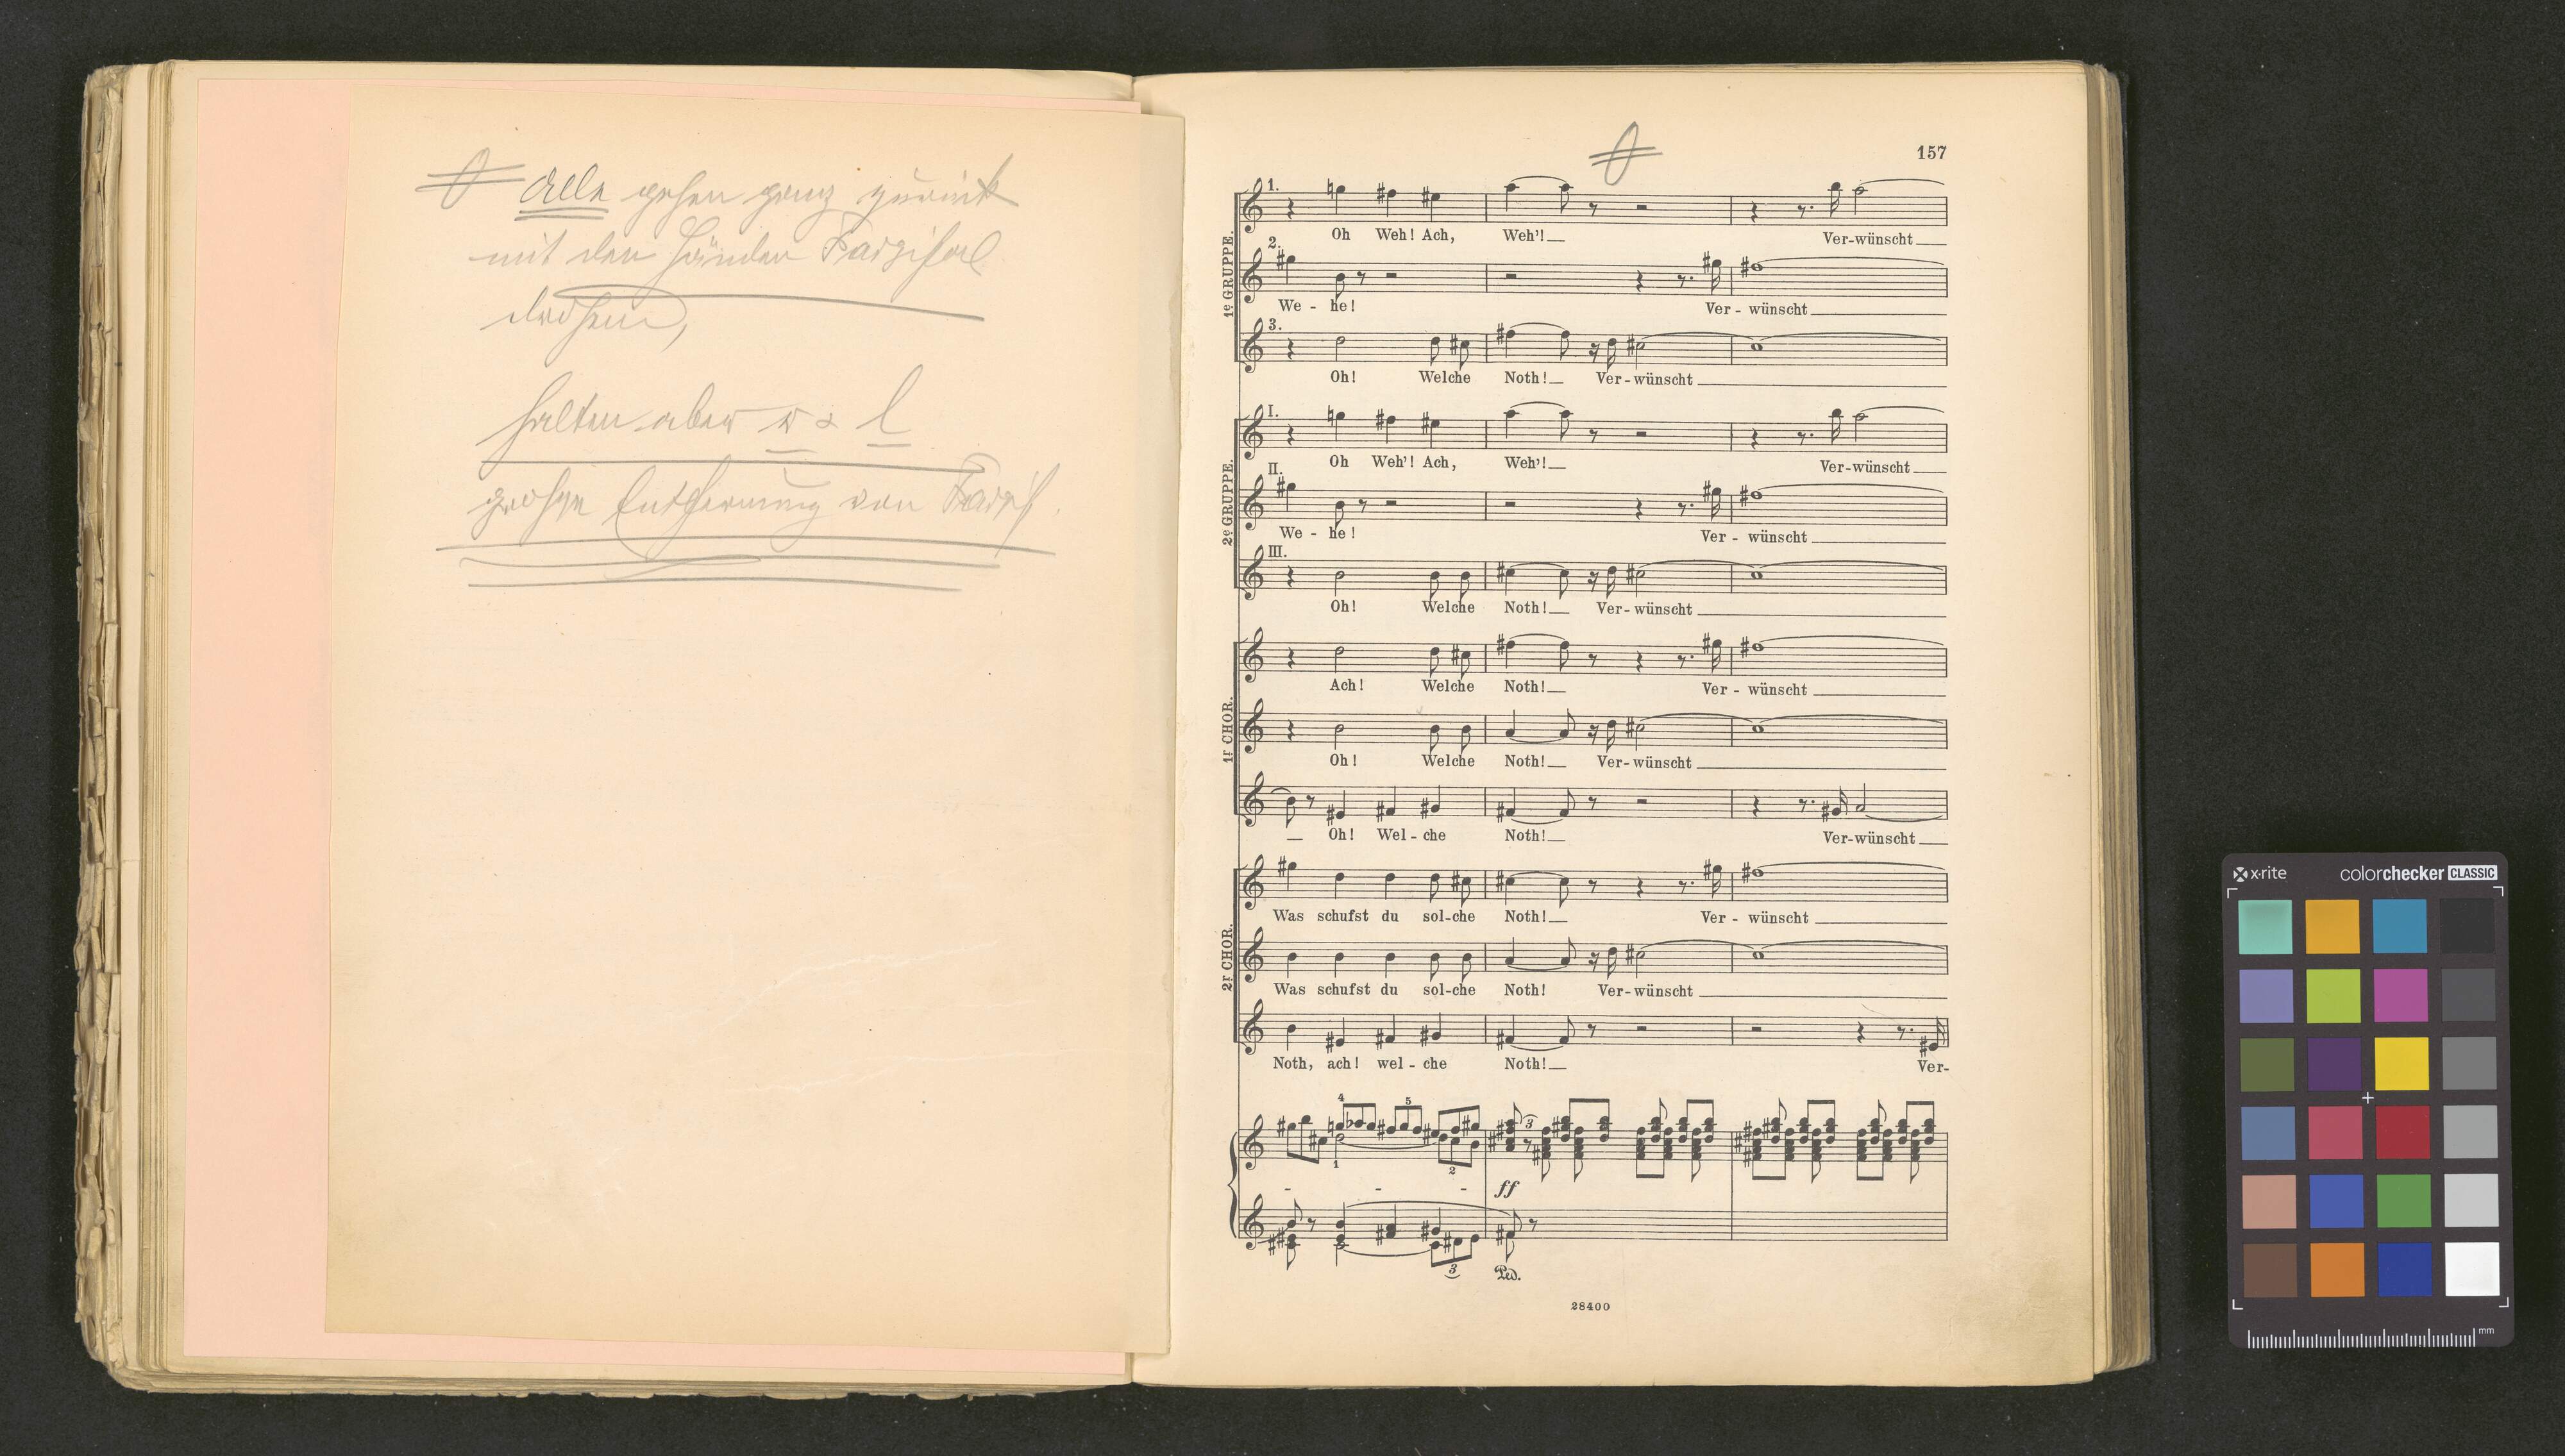 Alle gehen ganz zurück
mit den Händen Parsifal
drohend,
halten aber r & l
große Entfernung von Parsif.
157
1e GRUPPE.
1.
Oh Weh! Ach, Weh'! Ver-wünscht
2.
We - he! Ver - wünscht
3.
Oh! Welche Noth! Ver-wünscht
2e GRUPPE.
I.
Oh Weh'! Ach, Weh'! Ver-wünscht
II.
We - he! Ver - wünscht
III.
Oh! Welche Noth! Ver-wünscht
1r CHOR.
Ach! Welche Noth! Ver - wünscht
Oh! Welche Noth! Ver-wünscht
Oh! Wel - che Noth! Ver-wünscht
2r CHOR.
Was schufst du sol-che Noth! Ver - wünscht
Was schufst du sol-che Noth! Ver-wünscht
Noth, ach! wel - che Noth! Ver-
4 5 3
1 2
ff
3 Ped.
28400
x-rite colorchecker CLASSIC
mm